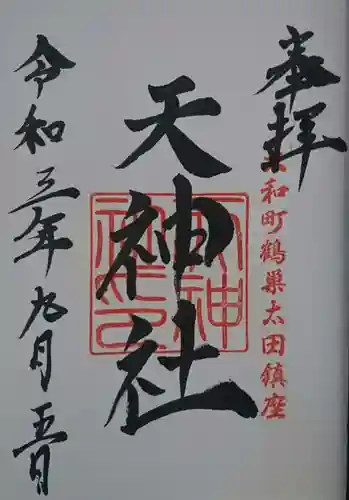 奉拝
大和町鶴巣太田鎮座
天神社
令和三年九月五日